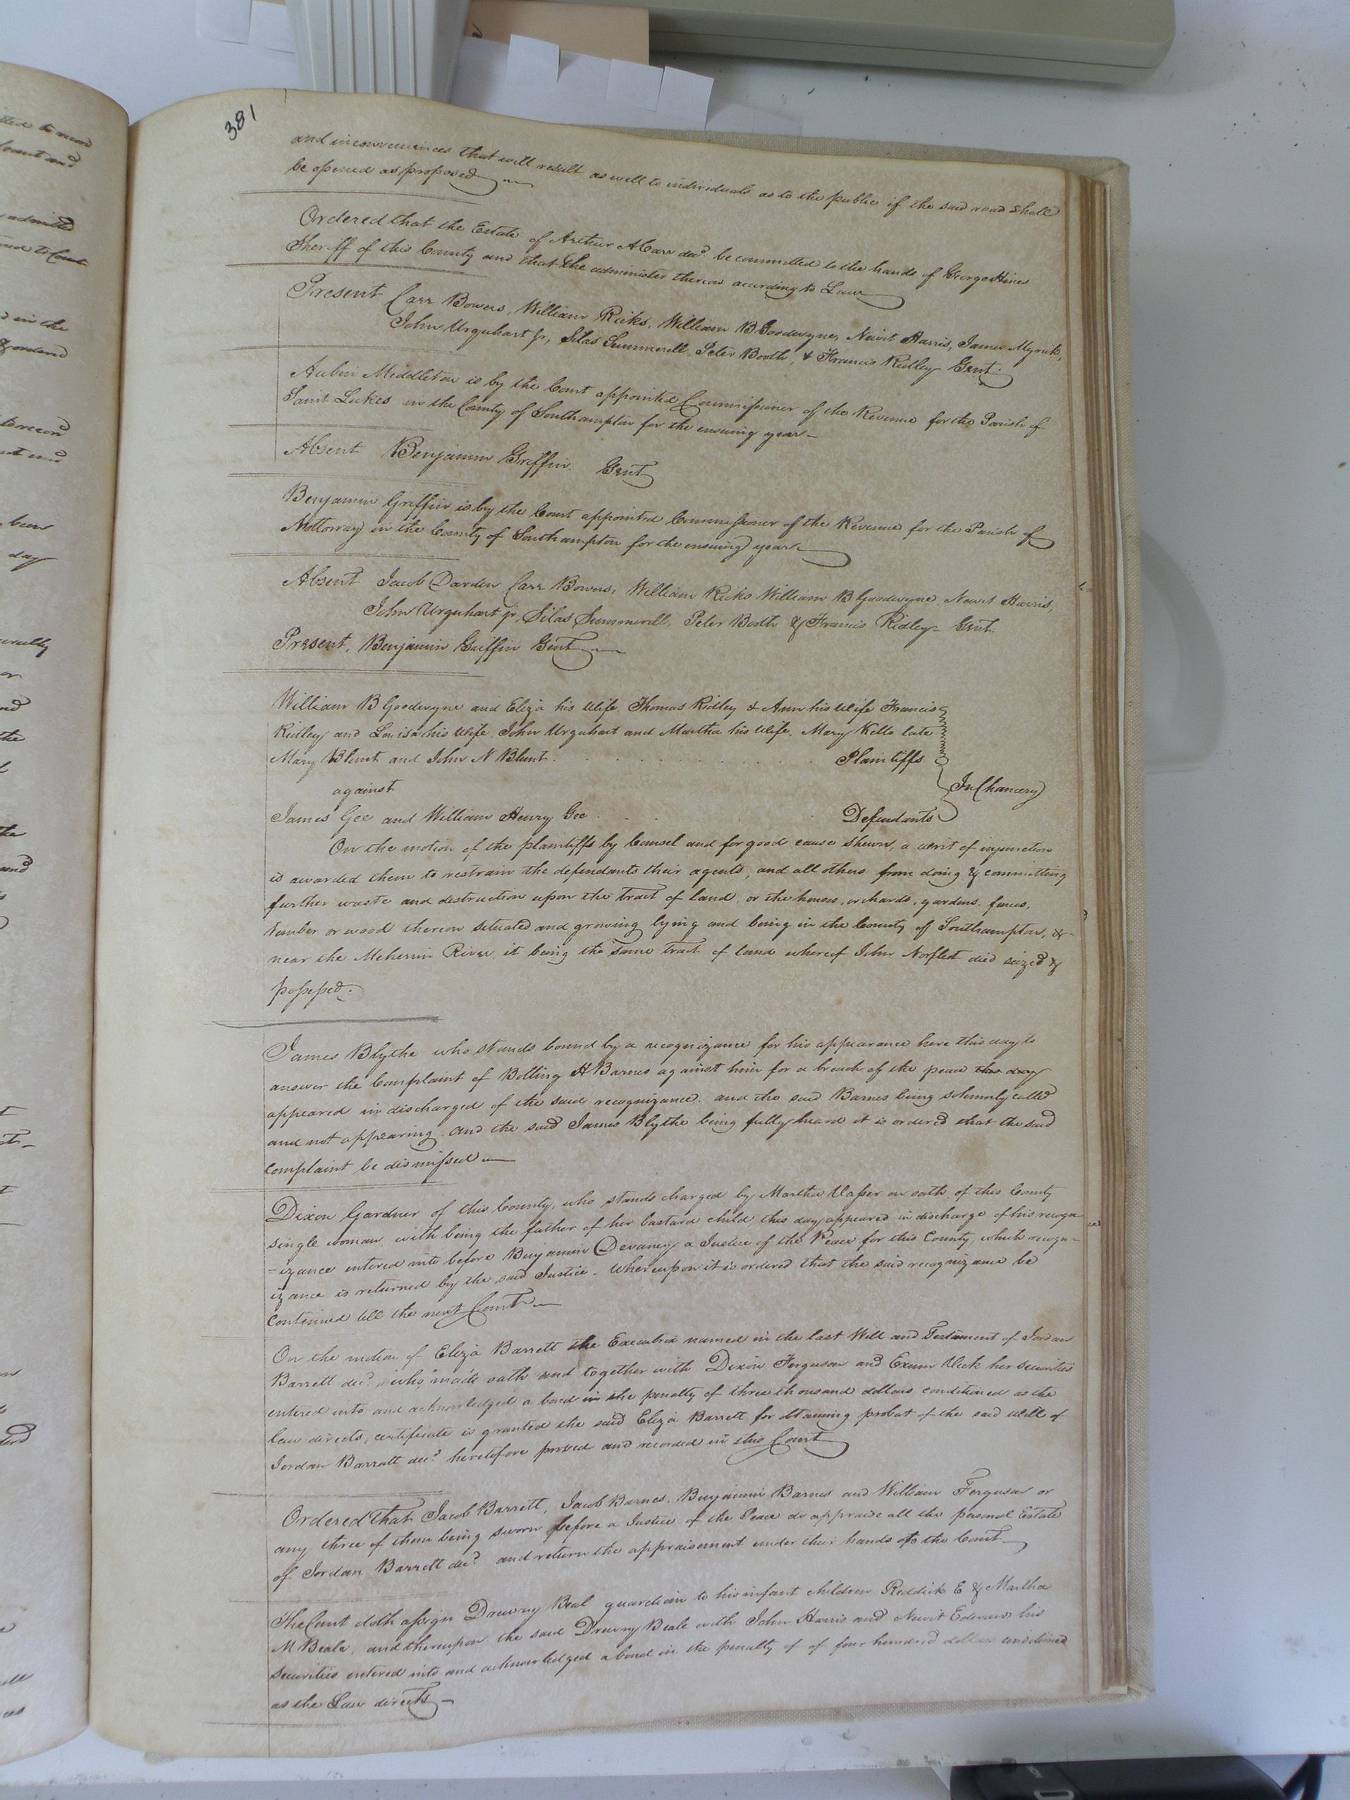 381
and inconveniences that will result as well to individuals as to the public if the said road shall
be opened as proposed
Ordered that the Estate of Arthur A Carr decd. be committed to the hands of George Hines
Sheriff of this County and that he administer thereon according to Law
Present Carr Bowers, William Ricks, William B Goodwyne, Newit Harris, James Myrick,
John Urquhart jr, Silas Summerell, Peter Booth, & Francis Ridley Gent.
Aubin Middleton is by the Court appointed Commissioner of the Revenue for the Parish of
Saint Lukes in the County of Southampton for the ensuing year
Absent Benjamin Griffin Gent
Benjamin Griffin is by the Court appointed Commissioner of the Revenue for the Parish of
Nottoway in the County of Southampton for the ensuing year
Absent Jacob Darden Carr Bowers, William Ricks William B Goodwyne Newit Harris,
John Urquhart jr, Silas Summerell, Peter Booth & Francis Ridley Gent.
Present, Benjamin Griffin Gent
William B Goodwyne and Eliza his Wife, Thomas Ridley & Ann his Wife Francis
Ridley and Louisa his Wife, John Urquhart and Martha his Wife, Mary Kello late
Mary Blunt and John N Blunt. Plaintiffs
against In Chancery
James Gee and William Henry Gee Defendants
On the motion of the plaintiffs by Counsel and for good cause shewn, a writ of injunction
is awarded them to restrain the defendants their agents, and all others from doing & committing
further waste and destruction upon the tract of land, or the houses, orchards, gardens, fences,
timber or wood thereon situated and growing lying and being in the County of Southampton, &
near the Meherrin River it being the same tract of land whereof John Norfleet died seized &
possessed.
James Blythe who stands bound by a recognizance for his appearance here this day to
answer the Complaint of Bolling H Barnes against him for a breach of the peace this day
appeared in discharged of the said recognizance. and the said Barnes being solemnly called
and not appearing. and the said James Blythe being fully heard it is ordered that the said
complaint be dismissed
Dixon Gardner of this County, who stands charged by Martha Vasser on oath, of this County
single woman, with being the father of her bastard child this day appeared in discharge of his recogn
izance entered into before Benjamin Devaney a Justice of the Peace for this County, which recogn-
izance is returned by the said Justice - Whereupon it is ordered that the said recognizance be
continued till the next Court
On the motion of Eliza Barrett the Executrix named in the last Will and Testament of Jordan
Barrett decd. who made oath and together with Dixon Ferguson and Exum Vick her securities
entered into and acknowledged a bond in the penalty of three thousand dollars conditioned as the
law directs, certificate is granted the said Eliza Barrett for obtaining probat of the said will of
Jordan Barrett decd. heretofore proved and recorded in this Court
Ordered that Jacob Barrett, Jacob Barnes, Benjamin Barnes and William Ferguson or
any three of them being sworn before a Justice of the Peace do appraise all the personal Estate
of Jordan Barrett decd. and return the appraisement under their hands to the Court
The Court doth assign Drewry Beal guardian to his infant children Reddick E & Martha
M Beale, and thereupon the said Drewry Beale with John Harris and Newit Edwards his
securities entered into and acknowledged a bond in the penalty of of four hundred dollars conditioned
as the Law directs